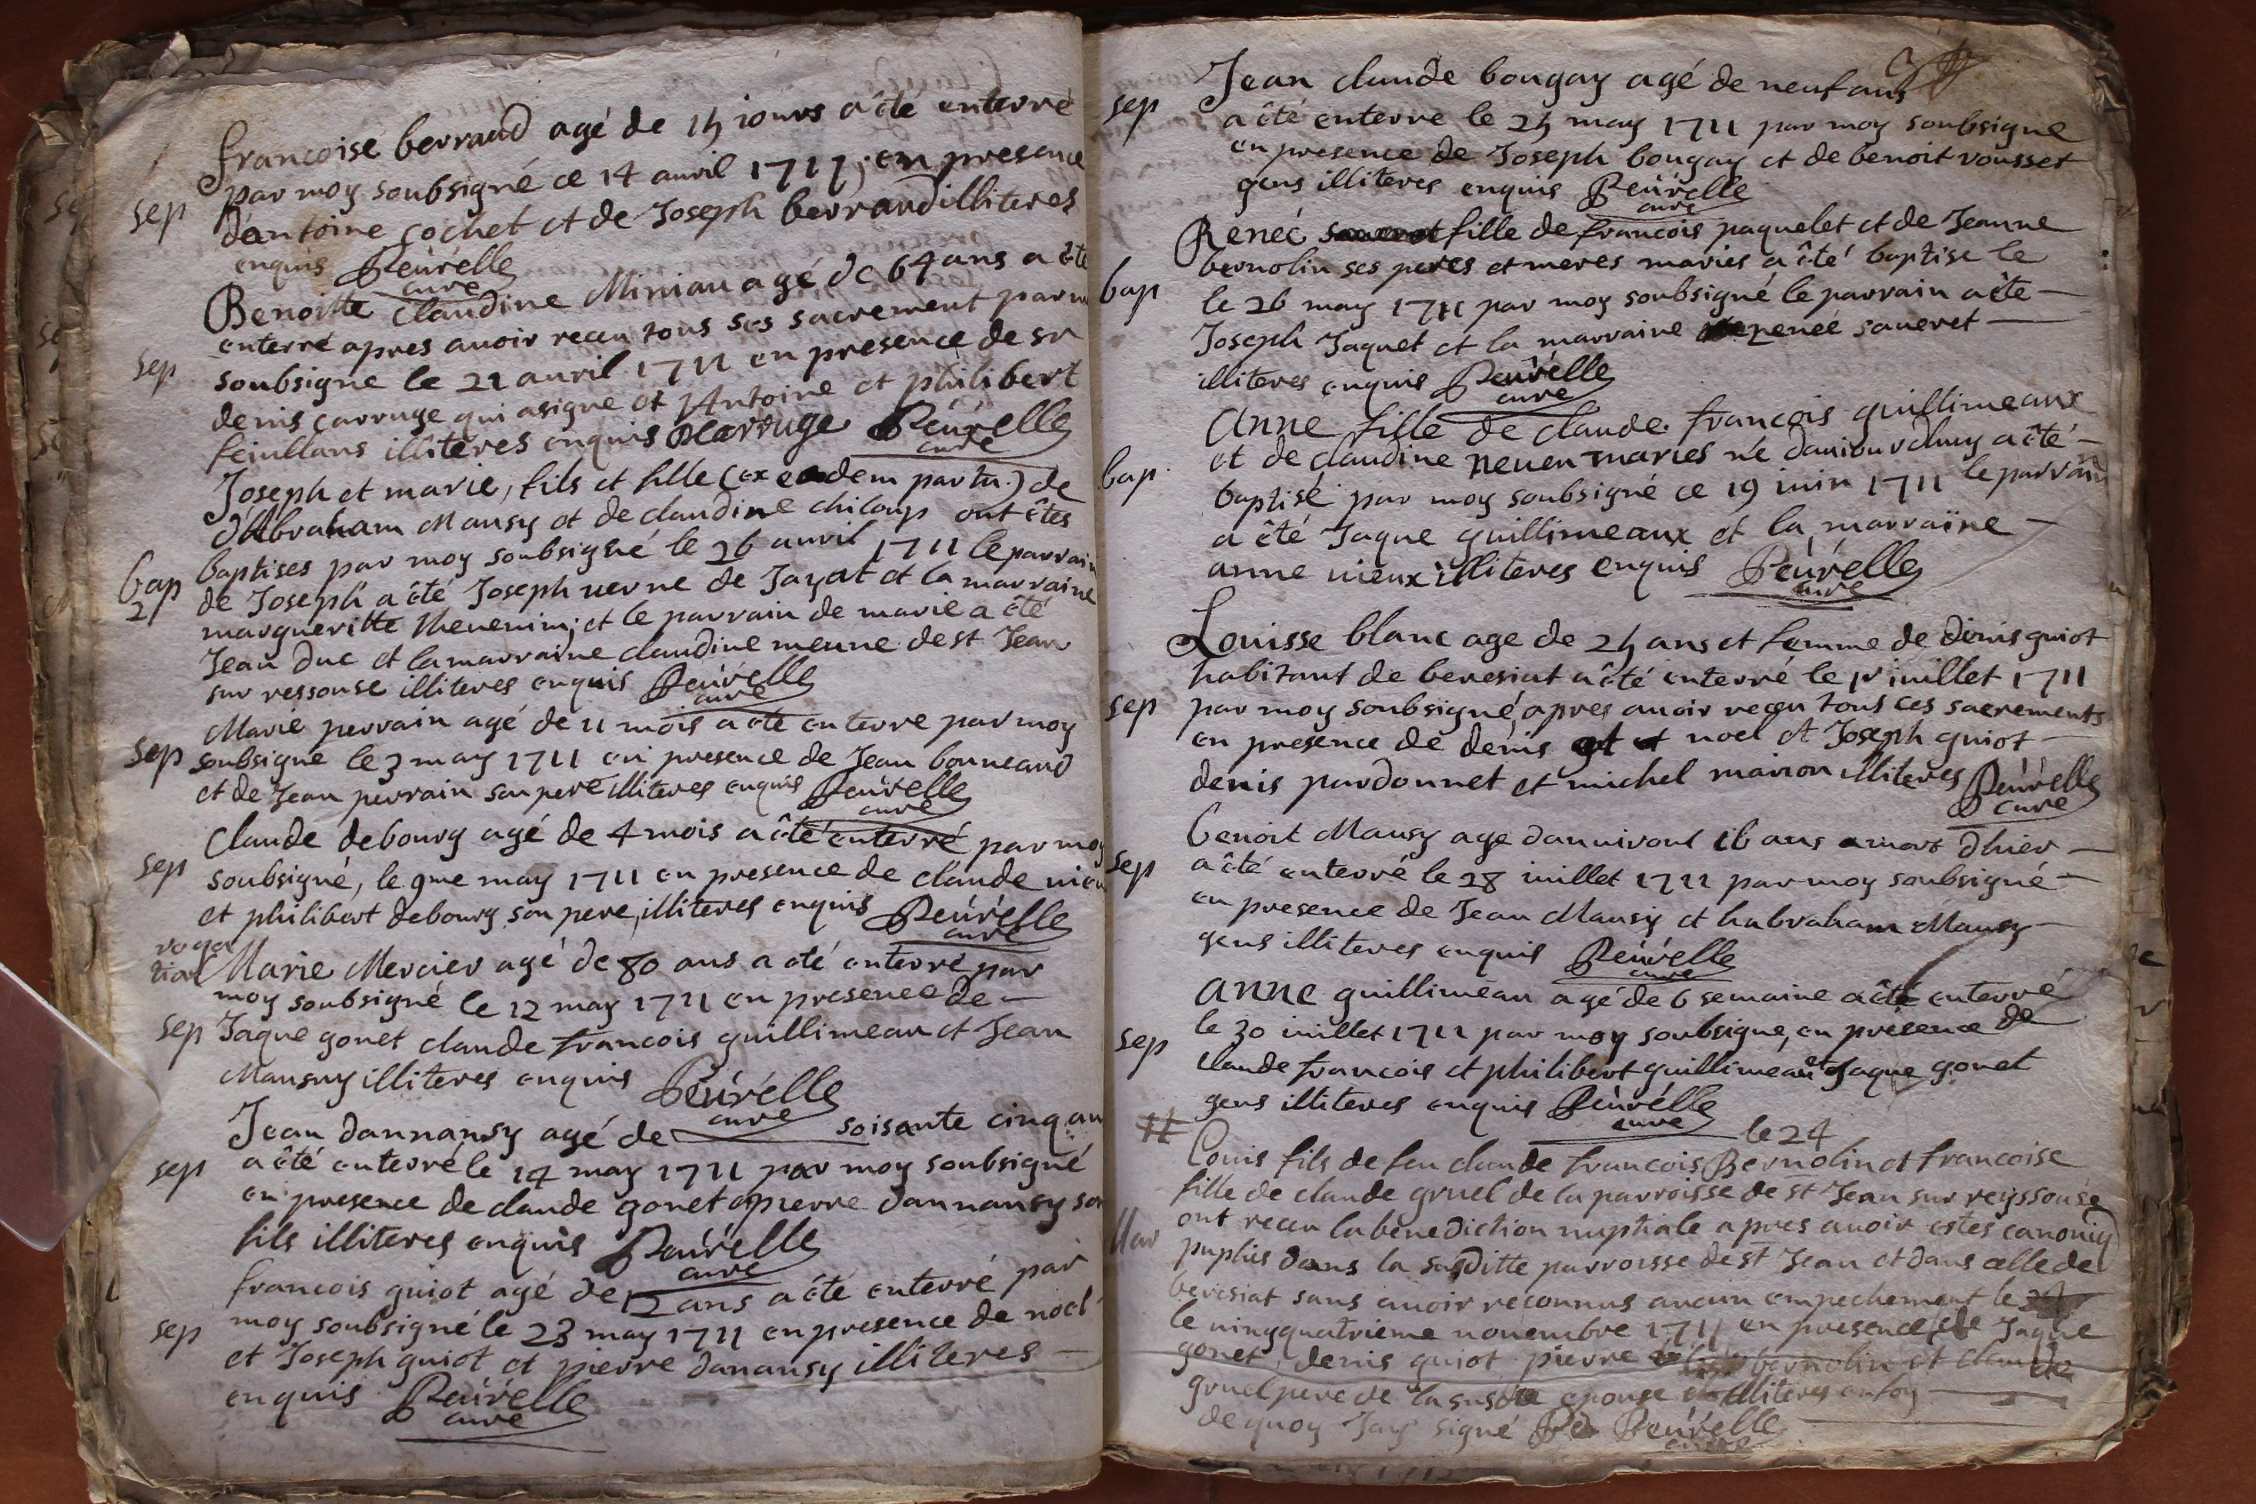 francoise berraud agé de 15 iours a êté enterré
sep par moy soubsigné ce 14 auril 1711, en presence
d'antoine cochet et de Joseph berraud illiteres
enquis Peúrelle
curé
Benoitte claudine Miniau agé de 64 ans a êté
enterré apres auoir receu tous ses sacrement par m
sep soubsigne le 21 auril 1711 en presence de sr
denis carruge qui a signe et Antoine et philibert
feiullans illiteres enquis Dcarruge Peúrelle
curé
Joseph et marie, fils et fille (ex eodem partu) de
d'Abraham Mansy et de claudine chiloup ont êtes
bap baptises par moy soubsigné le 26 auril 1711 le parrain
2 de Joseph a êté Joseph uerne de Jayat et la marraine
margueritte theuenin; et le parrain de marie a êté
Jean duc et la marraine claudine meune de st Jean
sur ressouse illiteres enquis Peúrelle
curé
Marie perrain agé de 11 mois a êté enterre par moy
sep soubsigne le 3 may 1711 en presence de Jean bonneaud
et de Jean perrain son pere illiteres enquis Peúrelle
curé
Claude debourg agé de 4 mois a êté enterré par moy
sep soubsigné, le 9me may 1711 en presence de claude nieu
et philibert debourg son pere, illiteres enquis Peúrelle
curé
roga
tiat Marie Mercier agé de 80 ans a eté enterré par
moy soubsigné le 12 may 1711 en presence de
sep Jaque gonet claude francois guillimeau et Jean
Mansuy illiteres enquis Peúrelle
curé
Jean dannansy agé de soisante cinq an
sep a êté enterré le 14 may 1711 par moy soubsigné
en presence de claude gonet et pierre dannansy son
fils illiteres enquis Peúrelle
curé
francois guiot agé de 12 ans a êté enterré par
sep moy soubsigné le 23 may 1711 en presence de noel
et Joseph guiot et pierre danansy illiteres
enquis Peúrelle
curé
Jean claude bougay agé de neuf ans
sep a êté enterre le 25 may 1711 par moy soubsigne
en presence de Joseph bougay et de benoit rousset
gens illiteres enquis Peúrelle
curé
Reneé saueret fille de francois paquelet et de Jeanne
bernolin ses peres et meres maries a êté baptise le
bap le 26 may 1711 par moy soubsigné le parrain a ête
Joseph Jaquet et la marraine reneé saueret
illiteres enquis Peúrelle
curé
Anne fille de claude francois guillimeaux
et de claudine neuen maries né dauiourdhuy a êté
bap baptisé par moy soubsigné ce 19 iuin 1711 le parrain
a êté Jaque guillimeaux et la marraine
anne nieux illiteres enquis Peúrelle
curé
Louisse blanc age de 25 ans et femme de denis guiot
habitant de beresiat a êté enterré le pr iuillet 1711
sep par moy soubsigné, apres auoir receu tous ces sacrements
en presence de denis et noel et Joseph guiot
denis pardonnet et michel marion illiteres Peúrelle
curé
benoit Mansy age danuiront 16 ans a mort dhier
sep a êté enterré le 28 iuillet 1711 par moy soubsigné
en presence de Jean Mansy et habraham Mansy
gens illiteres enquis Peúrelle
curé
anne guillimeau agé de 6 semaine a êté enterré
le 30 iuillet 1711 par moy soubsigne, en présence de
sep claude francois et philibert guillimeau et Jaque gonet
gens illiteres enquis Peúrelle
curé
le 24
Louis fils de feu claude francois Bernolin et francoise
fille de claude gruel de la parroisse de st Jean sur reyssouse
Mar ont receu la bénediction nuptiale apres auoir estes canoniq
puplies dans la susditte parroisse de st Jean et dans celle de
beresiat sans auoir reconnus aucun empechement le
le uingquatrieme nouembre 1711 en presence de Jaque
gonet, denis guiot pierre bernolin et claude
gruel pere de la susdte epouse illiteres en foy
de quoy Jay signé Peúrelle
curé